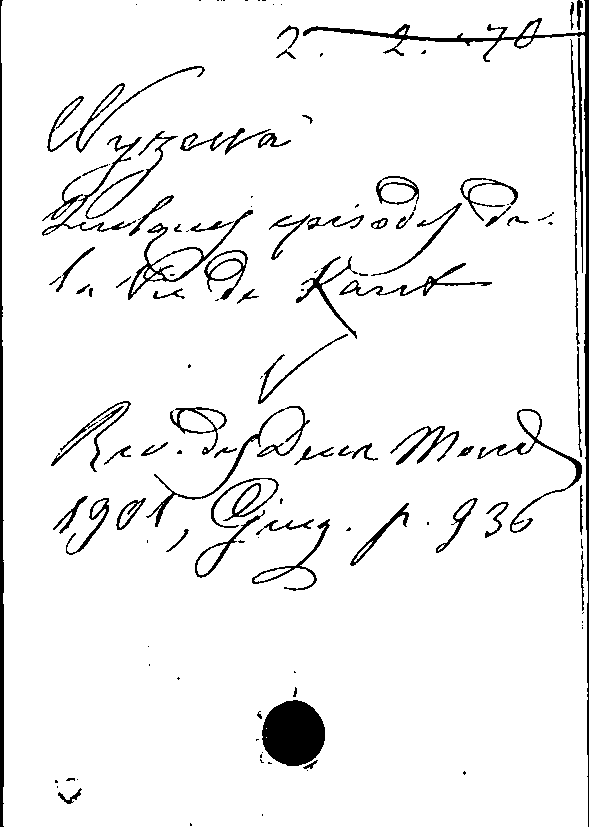 2. 2. 70
Wyzewa
Quelques episodes de
la Vie de Kant
Rev. des Deux Mond
1901, Giug. p. 936